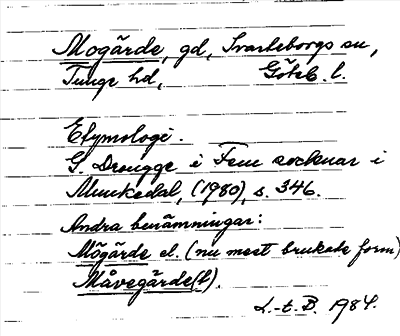 Mogärde, gd, Svarteborgs sn,
Tunge hd, Göteb. l.
Etymologi.
G. Drougge i Fem socknar i
Munkedal, (1980), s. 346.
Andra benämningar:
Mögärde el. (nu mest brukade form)
Måvegärde(t).
L.-t. B. 1984.